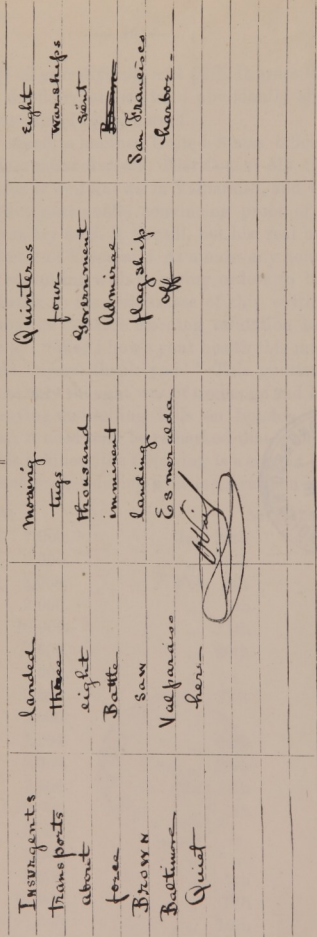 Insurgents landed morning Quinteros eight
transports three tugs four warships
about eight thousand Government sent
force Battle imminent Admiral
Brown saw landing flagship San Francisco
Baltimore Valparaiso Esmeralda off harbor-
Quiet here-